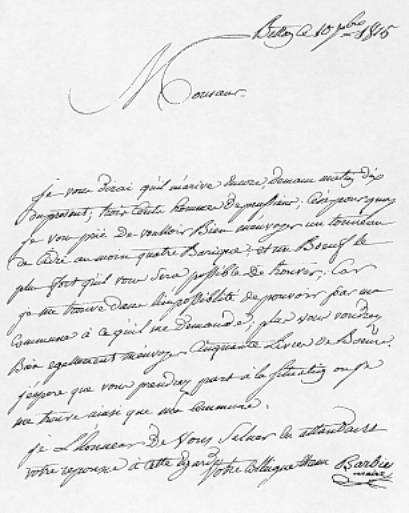 ce 10 7bre 1815
Monsieur
je vous dirai qu'il m'arive encore, demain matin dix
du présent, trois cents hommes de prussiens; C'est pourquoy
je vous prie de vouloir Bien m'envoyer un tonneau
de Cidre au moin quatre Barique; et un Boeuf le
plus fort qu'il vous Sera possible de trouver, Car
je me trouve dans l'impossiblité de pouvoir par ma
Commune à ce qu'il me demande, plus vous voudrez
Bien egallement m'envoyer Cinquante Livres de Beurre,
j'espere que vous prendrez part à la Situation ou je
me trouve ainsi que ma Commune.
je L'honneur De Vous Saluer en attendant
votre reponse à cette Egard votre Collegue Barbier
maire